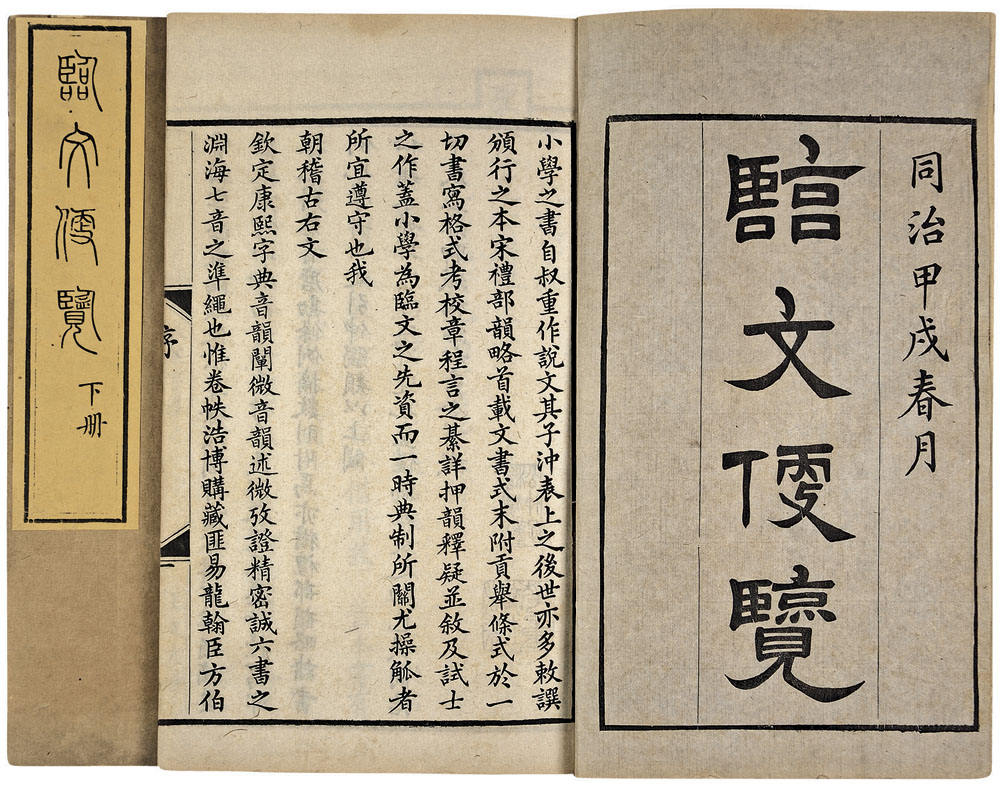 同治甲戌春月
臨文便覽
小學之書自叔重作說文其子沖表上之後世亦多敕譔
頒行之本宋禮部韻略首載文書式末附貢舉條式於一
切書寫格式考校章程言之綦詳押韻釋疑並敘及試士
之作蓋小學為臨文之先資而一時典制所關尤操觚者
所宜遵守也我
朝稽古右文
欽定康熙字典音韻闡微音韻述微攷證精密誠六書之
淵海七音之準繩也惟卷帙浩博購藏匪易龍翰臣方伯
序
臨文便覽 下冊